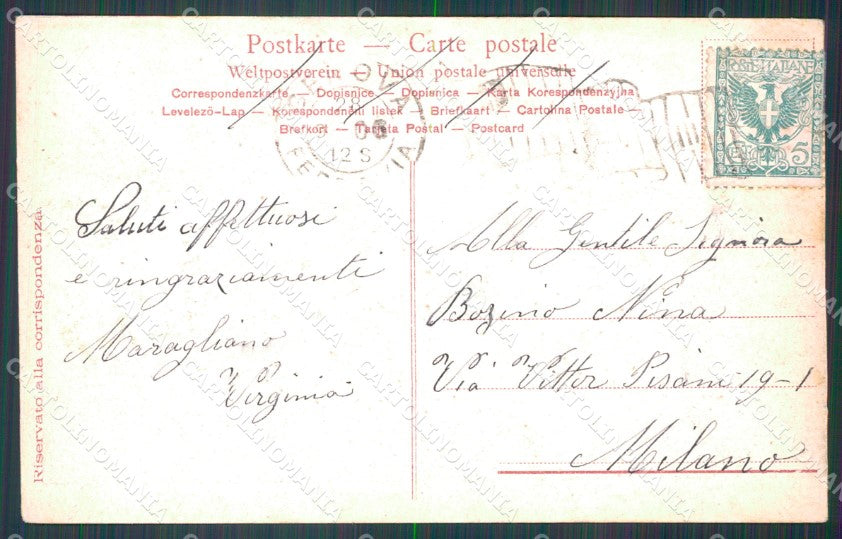 Postkarte — Carte postale
Weltpostverein — Union postale universelle
Correspondenzkarte — Dopisnice — Dopisnica — Karta Korespondenzyjna
Levelező-Lap — Korespondenční listek — Briefkaart — Cartolina Postale
Brefkort — Tarjeta Postal — Postcard
OVA
08
12 S
POSTE ITALIANE
5
Riservato alla corrispondenza.
Saluti affettuosi
e ringraziamenti
Maragliano
Virginia
Alla Gentile Signora
Bozino Nina
Via Vittor Pisani 19-1
Milano
CARTOLINOMANIA